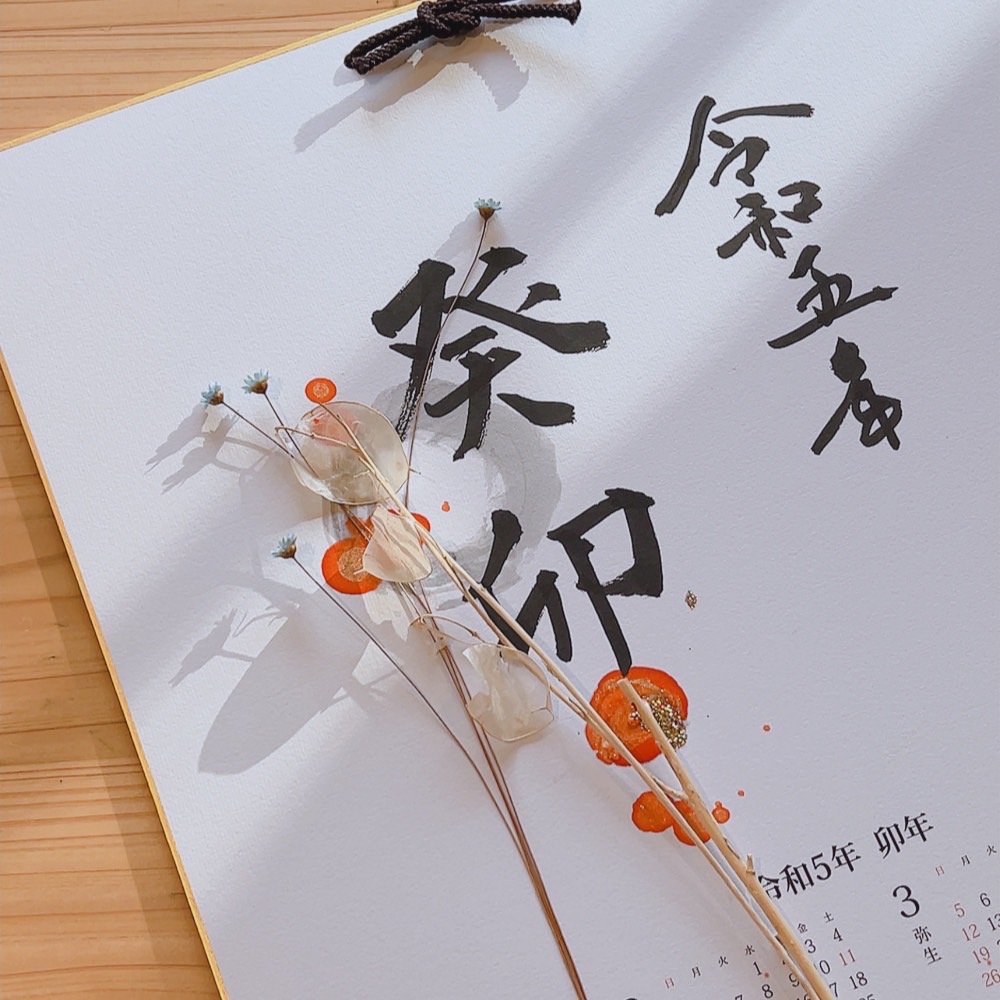 令和五年
癸卯
令和5年 卯年
金 土
3 4
11
日 月 火 水
1
7 8 9 10
17 18
3
弥生
日 月 火
5 6
12 13
19
26